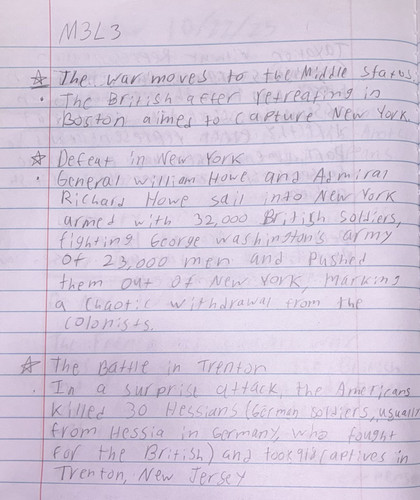 M3L3
☆ The war moves to the Middle States
• The British after retreating in
Boston aimed to capture New York.
☆ Defeat in New York
• General William Howe and Admiral
Richard Howe sail into New York
armed with 32,000 British soldiers,
fighting George Washington's army
of 23,000 men and pushed
them out of New York, marking
a chaotic withdrawal from the
colonists.
☆ The Battle in Trenton
• In a surprise attack, the Americans
killed 30 Hessians (German soldiers, usually
from Hessia in Germany, who fought
for the British) and took captives in
Trenton, New Jersey